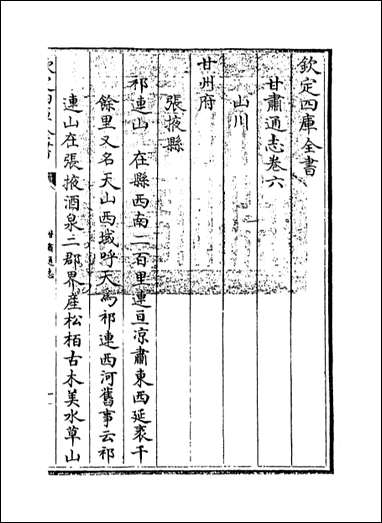 欽定四庫全書
甘肅通志卷六
山川
甘州府
張掖縣
祁連山 在縣西南二百里連亘涼肅東西延袤千
餘里又名天山西域呼天為祁連西河舊事云祁
連山在張掖酒泉二郡界産松栢古木美水草山
甘肅通志